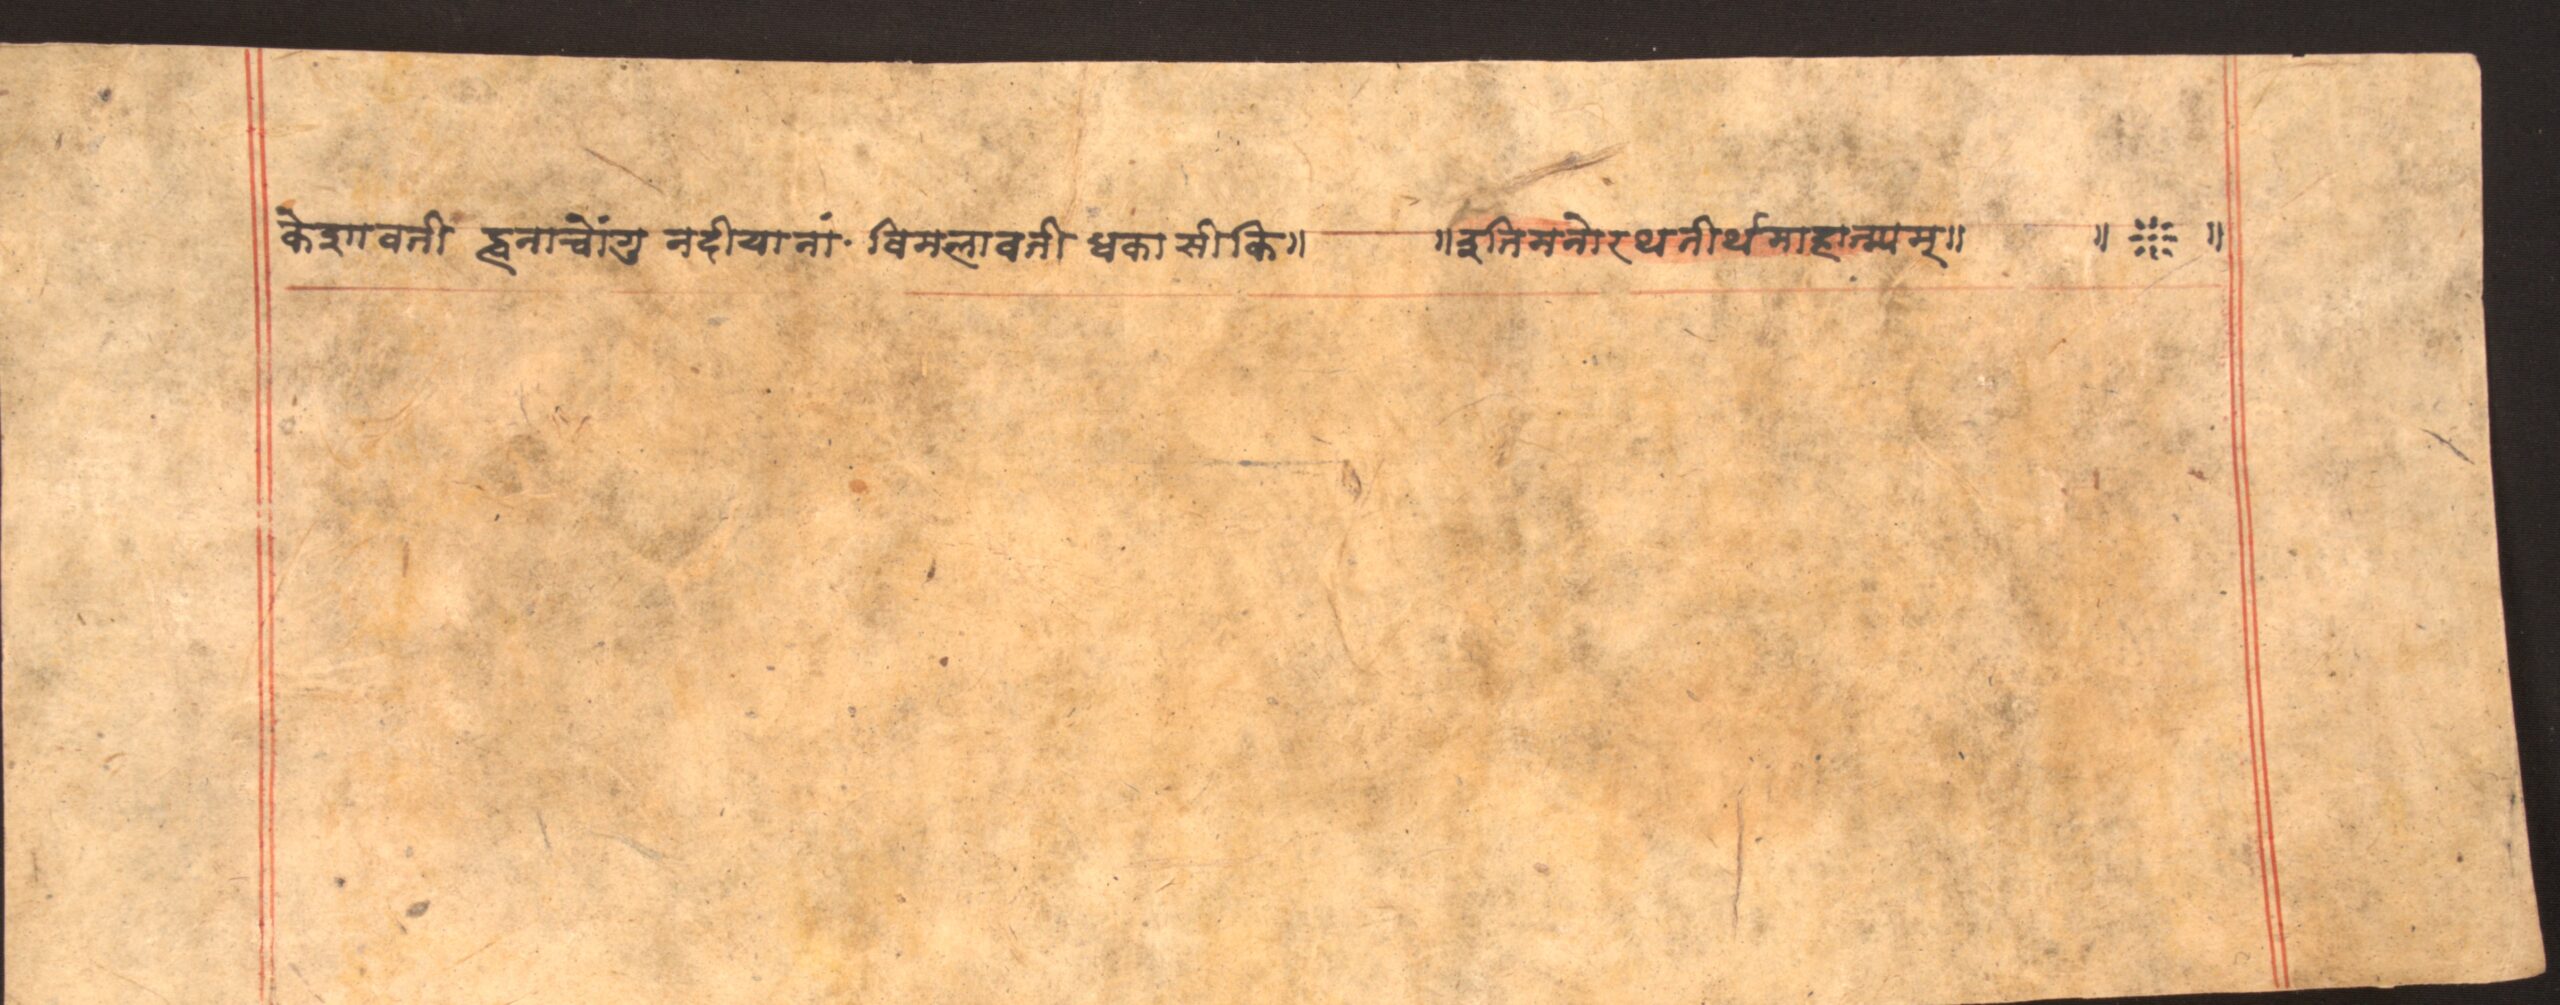 केशावती ह्वनाच्वोंगु नदीयानां॰ विमलावती धकासीकि॥ ॥इतिमनोरथतीर्थमाहात्म्यम्॥ ॥ ॥